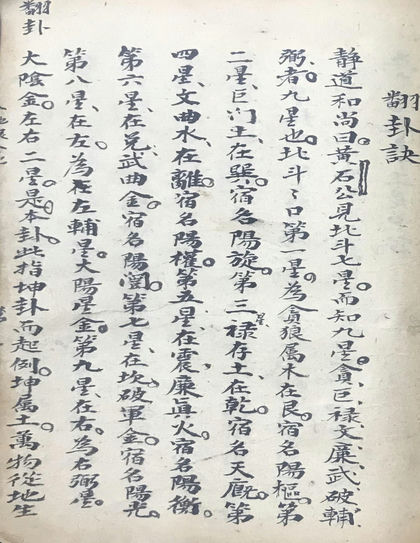 翻卦訣
静道和尚曰。黃石公見北斗七星。而知九星。貪、巨、祿、文、廉、武、破、輔、
弼者。九星也。北斗斗口第一星。為貪狼。属木。在艮。宿名陽樞。第
二星、巨门土、在巽。宿名陽旋。第三星祿存土、在乾。宿名天
四星、文曲水、在離。宿名陽權。第五星、在震、廉真火。宿名陽衡。
第六星、在兌、武曲金。宿名陽闓。第七星、在坎、破軍金。宿名陽光。
第八星、在左。為左輔星。太陽星金。第九星、在右。為右弼星。
大陰金。左右二星。是本卦。此指坤卦而起例。坤属土。萬物從地生
翻卦